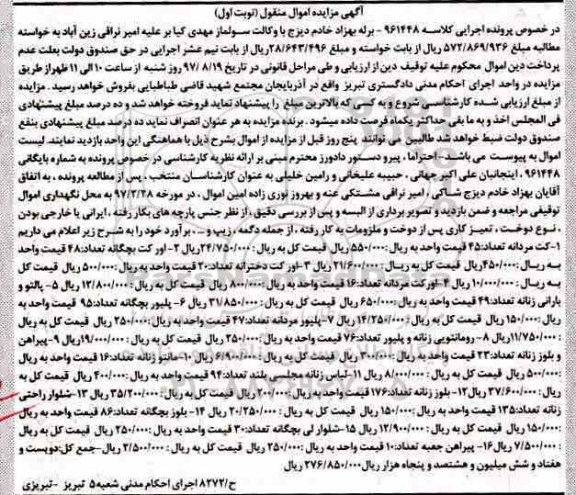 آگهی مزایده اموال منقول (نوبت اول)
در خصوص پرونده اجرایی کلاسه ۹۶۱۴۴۸ - برله بهزاد خادم دیزج با وکالت سولماز مهدی کیا بر علیه امیر نراقی زین آباد به خواسته
مطالبه مبلغ ۵۷۲/۸۶۹/۹۳۶ ریال از بابت خواسته و مبلغ ۲۸/۶۴۳/۴۹۶ ریال از بابت نیم عشر اجرایی در حق صندوق دولت بعلت عدم
پرداخت دین اموال محکوم علیه توقیف دین از ارزیابی و طی مراحل قانونی در تاریخ ۹۷/۰۸/۱۹ روز شنبه از ساعت ۱۰ الی ۱۱ ظهراز طریق
مزایده در واحد اجرای احکام مدنی دادگستری تبریز واقع در آذربایجان مجتمع شهید قاضی طباطبایی بفروش خواهد رسید . مزایده
از مبلغ ارزیابی شده کارشناسی شروع و به کسی که بالاترین مبلغ را پیشنهاد نماید فروخته خواهد شد و ده درصد مبلغ پیشنهادی
فی المجلس اخذ و به مابقی حداکثر یکماه فرصت داده میشود . برنده مزایده به هر عنوان انصراف نماید ده درصد مبلغ پیشنهادی بنفع
صندوق دولت ضبط خواهد شد طالبین می توانند پنج روز قبل از مزایده از اموال بشرح ذیل با هماهنگی این واحد بازدید نمایند. لیست
اموال به پیوست می باشد- احتراما ، پیرو دستور دادورز محترم مبنی بر ارائه نظریه کارشناسی در خصوص پرونده به شماره بایگانی
۹۶۱۴۴۸ ، اینجانبان علی اکبر جهانی ، حبیبه علیخانی و رامین خلیلی به عنوان کارشناسان منتخب ، پس از مطالعه پرونده ، به اتفاق
آقایان بهزاد خادم دیزج شاکی ، امیر نراقی مشتکی عنه و بهروز نوری زاده امین اموال ، در مورخه ۹۷/۳/۲۸ به محل نگهداری اموال
توقیفی مراجعه و ضمن بازدید و تصویر برداری از البسه و پس از بررسی دقیق ، از نظر جنس پارچه های بکار رفته ، ایرانی یا خارجی بودن
، نوع دوخت ، تمیز کاری پس از دوخت و ملزومات به کار رفته ، از جمله دگمه ، زیپ و ... برآورد خود را به شرح زیر اعلام می داریم
۱-کت مردانه تعداد:۴۵ قیمت واحد به ریال:۵۵۰/۰۰۰ ریال قیمت کل به ریال: ۲۴/۷۵۰/۰۰۰ ریال ۲- اور کت بچگانه تعداد:۴۸ قیمت واحد
به ریال:۴۵۰/۰۰۰ ریال قیمت کل به ریال: ۲۱/۶۰۰/۰۰۰ ریال ۳-اور کت دخترانه تعداد:۲۰ قیمت واحد به ریال:۵۰۰/۰۰۰ ریال قیمت کل
به ریال: ۱۰/۰۰۰/۰۰۰ ریال ۴-اور کت مردانه تعداد:۱۶ قیمت واحد به ریال:۸۰۰/۰۰۰ ریال قیمت کل به ریال: ۱۲/۸۰۰/۰۰۰ ریال ۵- پالتو و
بارانی زنانه تعداد:۴۹ قیمت واحد به ریال:۶۵۰/۰۰۰ ریال قیمت کل به ریال: ۳۱/۸۵۰/۰۰۰ ریال ۶- پلیور بچگانه تعداد: ۹۵ قیمت واحد به
ریال:۱۵۰/۰۰۰ ریال قیمت کل به ریال: ۱۴/۲۵۰/۰۰۰ ریال ۷-پلیور مردانه تعداد:۴۷ قیمت واحد به ریال: ۲۵۰/۰۰۰ ریال قیمت کل به ریال
:۱۱/۷۵۰/۰۰۰ ریال ۸- رومانتویی زنانه و پلیور تعداد:۷۶ قیمت واحد به ریال: ۲۵۰/۰۰۰ ریال قیمت کل به ریال :۱۹/۰۰۰/۰۰۰ ریال ۹-پیراهن
و بلوز زنانه تعداد:۲۳ قیمت واحد به ریال: ۳۰۰/۰۰۰ ریال قیمت کل به ریال: ۶/۹۰۰/۰۰۰ ریال ۱۰-مانتو زنانه تعداد:۱۶ قیمت واحد به
ریال:۵۰۰/۰۰۰ ریال قیمت کل به ریال: ۸/۰۰۰/۰۰۰ ریال ۱۱-لباس زنانه مجلسی بلند تعداد:۹۴ قیمت واحد به ریال:۴۰۰/۰۰۰ ریال قیمت کل به
ریال: ۳۷/۶۰۰/۰۰۰ ریال ۱۲-بلوز زنانه تعداد:۱۷۶ قیمت واحد به ریال: ۲۰۰/۰۰۰ ریال قیمت کل به ریال: ۳۵/۲۰۰/۰۰۰ ریال ۱۳-شلوار راحتی
زنانه تعداد:۱۳۵ قیمت واحد به ریال:۱۵۰/۰۰۰ ریال قیمت کل به ریال: ۲۰/۲۵۰/۰۰۰ ریال ۱۴- بلوز بچگانه تعداد:۸۶ قیمت واحد به ریال
:۱۵۰/۰۰۰ ریال قیمت کل به ریال: ۱۲/۹۰۰/۰۰۰ ریال ۱۵-شلوار لی بچگانه تعداد:۳۰ قیمت واحد به ریال:۲۵۰/۰۰۰ ریال قیمت کل به ریال
: ۷/۵۰۰/۰۰۰ ریال۱۶- پیراهن جعبه تعداد:۱۰ قیمت واحد به ریال:۲۵۰/۰۰۰ ریال قیمت کل به ریال: ۲/۵۰۰/۰۰۰ ریال-جمع کل:دویست و
هفتاد و شش میلیون و هشتصد و پنجاه هزار ریال۲۷۶/۸۵۰/۰۰۰ ریال
ح/۸۲۷۲ اجرای احکام مدنی شعبه۵ تبریز - تبریزی